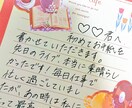 ♡♡君へ
初めてお手紙を
書かせていただきます。
先日のライブ、本当に素晴らし
かったです!毎日仕事で
忙しく過ごしていまし
たが、あの時